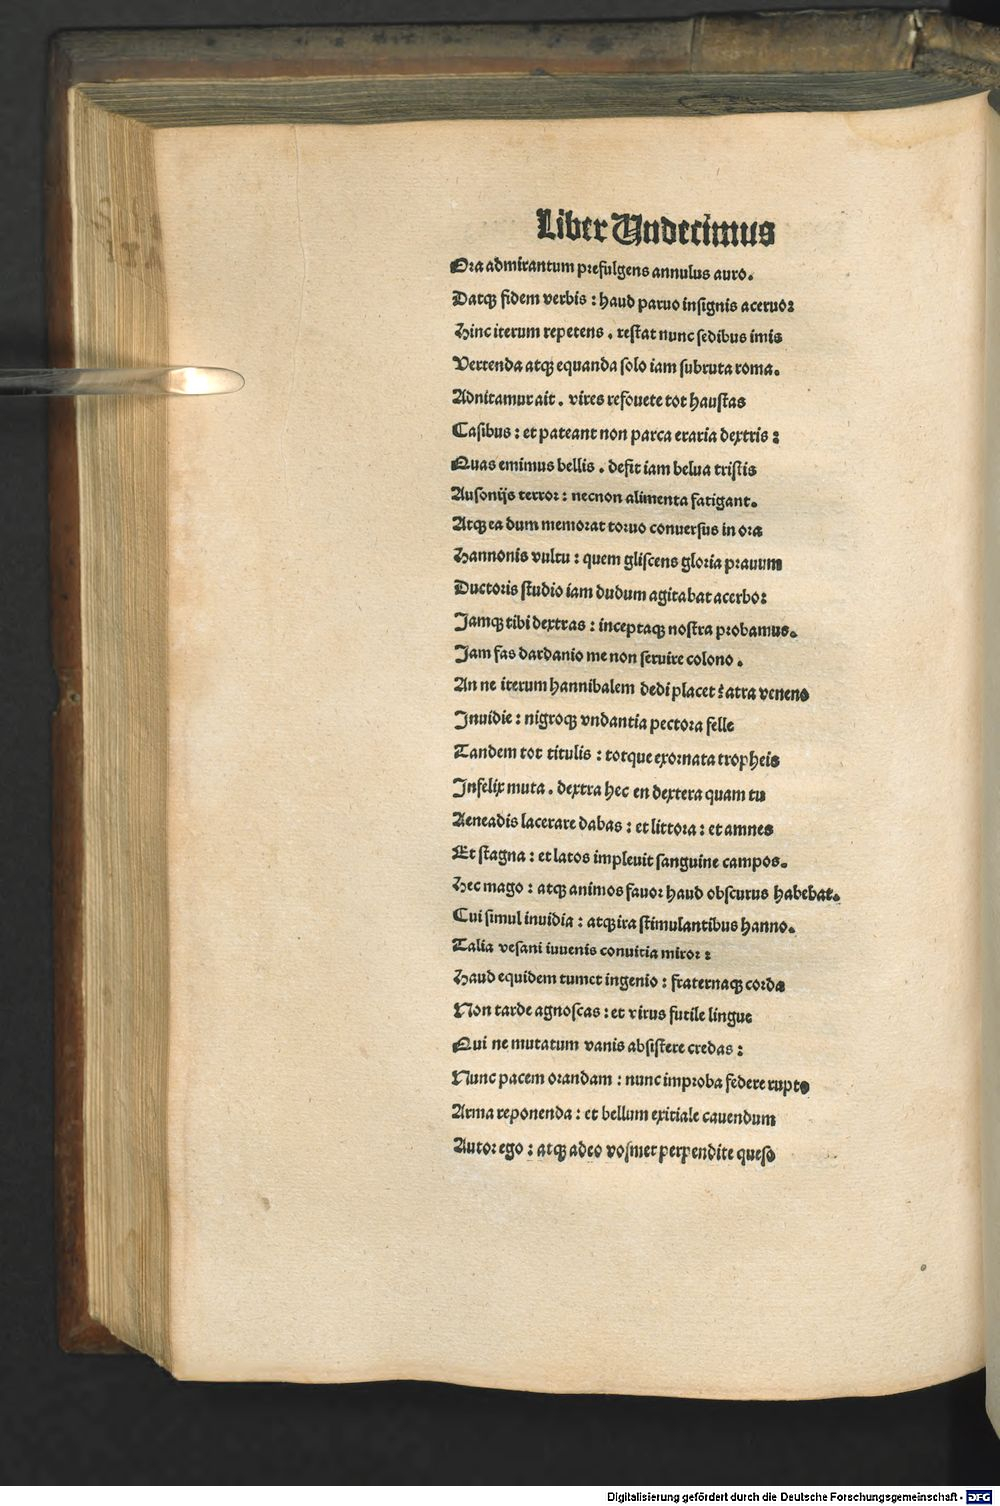 Liber Undecimus
Ora admirantum prefulgens annulus auro.
Datqꝫ fidem verbis : haud paruo insignis aceruo:
Hinc iterum repetens . restat nunc sedibus imis
Vertenda atqꝫ equanda solo iam subruta roma.
Adnitamur ait . vires refouete tot haustas
Casibus : et pateant non parca eraria dextris :
Quas emimus bellis . defit iam belua tristis
Ausonijs terror : necnon alimenta fatigant.
Atqꝫ ea dum memorat toruo conuersus in ora
Hannonis vultu : quem gliscens gloria prauum
Ductoris studio iam dudum agitabat acerbo:
Jamqꝫ tibi dextras : inceptaqꝫ nostra probamus.
Jam fas dardanio me non seruire colono .
An ne iterum hannibalem dedi placet : atra veneno
Inuidie : nigroqꝫ vndantia pectora felle
Tandem tot titulis : totque exornata tropheis
Infelix muta . dextra hec en dextera quam tu
Aeneadis lacerare dabas : et littora : et amnes
Et stagna : et latos impleuit sanguine campos.
Hec mago : atqꝫ animos fauor haud obscurus habebat.
Cui simul inuidia : atqꝫ ira stimulantibus hanno.
Talia vesani iuuenis conuitia miror :
Haud equidem tumet ingenio : fraternaqꝫ corda
Non tarde agnoscas : et virus futile lingue
Qui ne mutatum vanis absistere credas :
Nunc pacem orandam : nunc improba federe rupto
Arma reponenda : et bellum exitiale cauendum
Autor ego : atqꝫ adeo vosmet perpendite queso
Digitalisierung gefördert durch die Deutsche Forschungsgemeinschaft - DFG